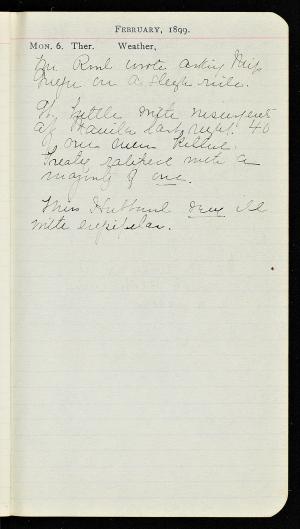 FEBRUARY, 1899.
MON. 6. Ther. Weather,
wrote asking Miss
on a sleigh ride.
Gt. Battle with insurgents
at Manila last night. 40
our men killed.
Treaty ratified with a
majority of one.
Miss Hubbard very ill
with erysipelas.